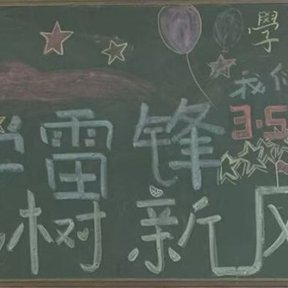 學
我们
3.5
学雷锋
树新风